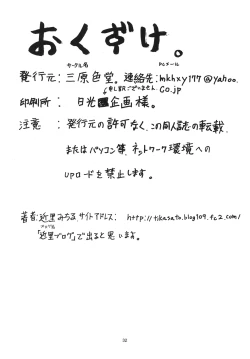 おくづけ。
サークル名 PCメール
発行元：三原色堂。連絡先：mkhxy177@yahoo.
co.jp
申し訳ございません
印刷所：日光企画様。
注意：発行元の許可なく、この同人誌の転載、
またはパソコン等、ネットワーク環境への
upロードを禁止します。
著者：近里みちる サイトアドレス：http://tikasato.blog109.fc2.com/
「近里ブログ」で出ると思います。
32